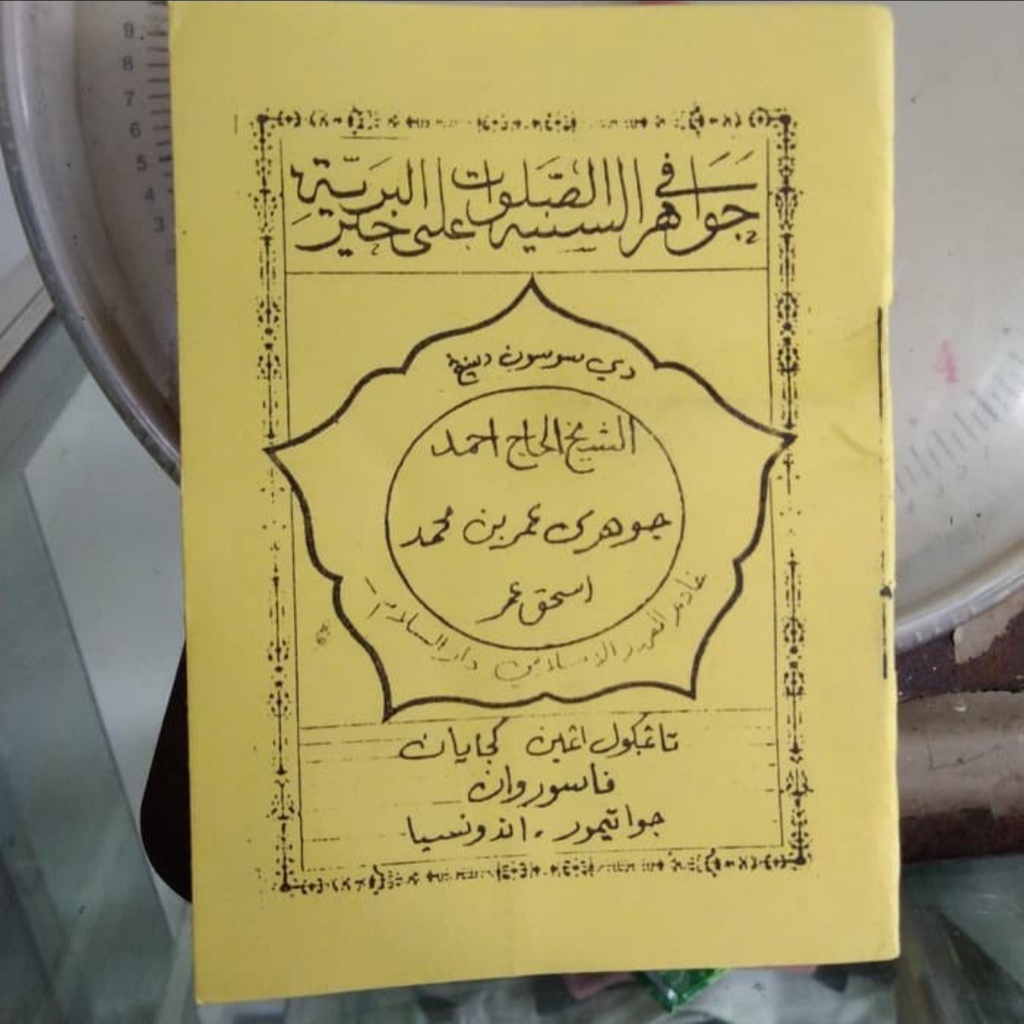 جَوَاهر السنية في الصَّلوات على خير البريّة
دي سوسون اوليه
الشيخ الحاج احمد
جوهرى عمر بن محمد
اسحق عمر
خادم المعهد الاسلامي دار السلام
تاڠڮول اڠين کجايان
ڤاسوروان
جوا تيمور - اندونسيا
9
8
7
6
5
4
3
4